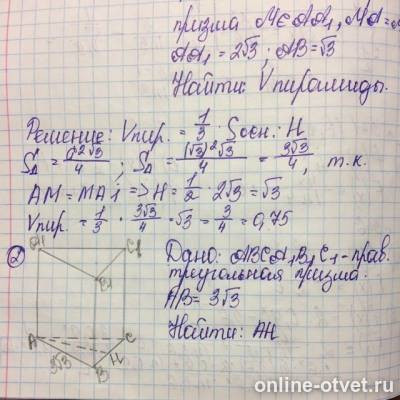 призма M∈AA₁, MA=
AA₁ = 2√3; AB=√3
Найти: Vпирамиды.
Решение: Vпир. = 1/3 · Sосн. · H
S△ = a²√3/4; S△ = (√3)²√3/4 = 3√3/4, т.к.
AM = MA1 => H = 1/2 · 2√3 = √3
Vпир. = 1/3 · 3√3/4 · √3 = 3/4 = 0,75
2 Дано: ABCA₁B₁C₁ - прав.
треугольная призма.
AB = 3√3
Найти: AH
A1
C1
B1
A
C
H
B
3√3
online-otvet.ru